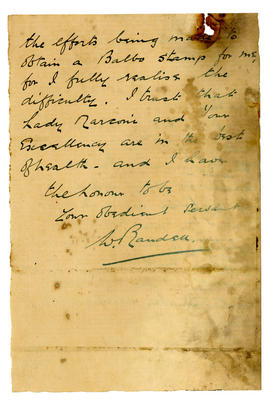 the efforts being made to
obtain a Balbo stamps for me,
for I fully realise the
difficulty. I trust that
Lady Marconi and Your
Excellency are in the best
of health - and I have
the honour to be
Your Obedient Servant
W. Randell.